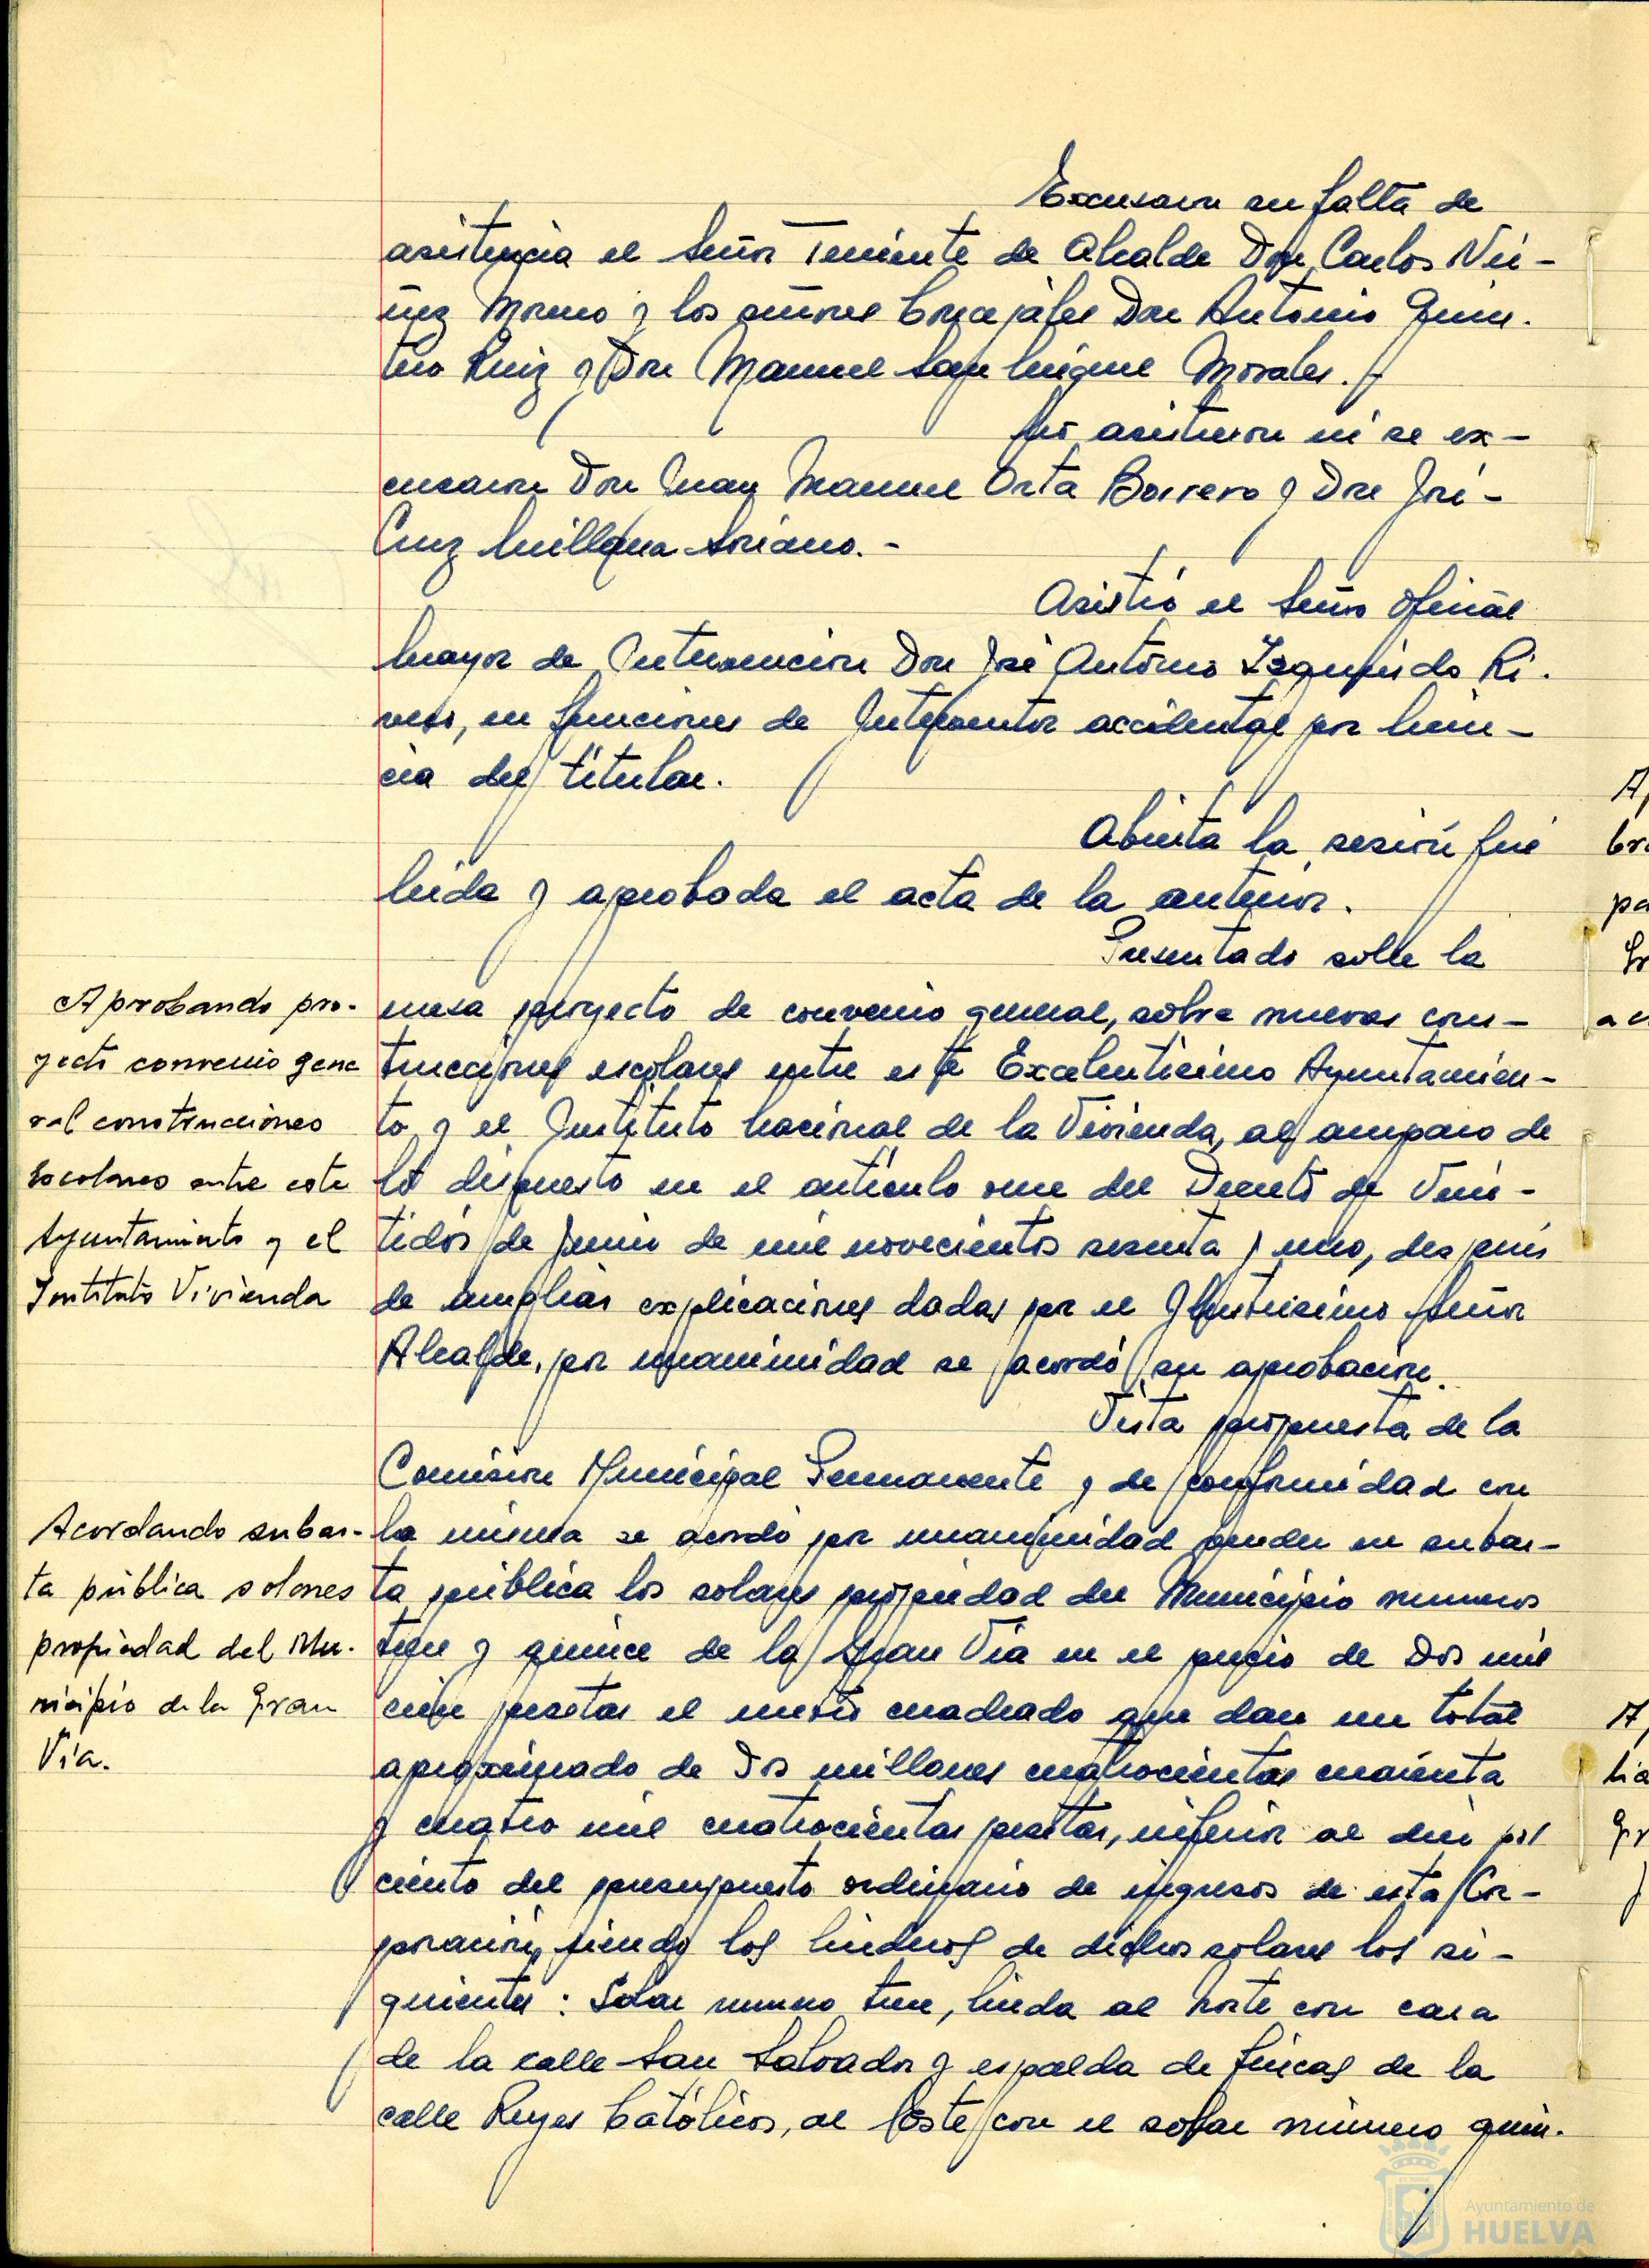 Excusaron su falta de
asistencia el Señor Teniente de Alcalde Don Carlos Nú-
ñez Moreno y los señores Concejales Don Antonio Quin-
tero Ruiz y Don Manuel San Miguel Morales.-
No asistieron ni se ex-
cusaron Don Juan Manuel Orta Borrero y Don José-
Cruz Millana Soriano.-
Asistió el Señor Oficial
Mayor de Intervención Don José Antonio Izquierdo Ri-
vero, en funciones de Interventor accidental por licen-
cia del titular.
Abierta la sesión fué
leida y aprobada el acta de la anterior.
Presentado sobre la
Aprobando pro-
yecto convenio gene
ral construcciones
Escolares entre este
Ayuntamiento y el
Instituto Vivienda
mesa proyecto de convenio general, sobre nuevas cons-
trucciones escolares entre este Excelentísimo Ayuntamien-
to y el Instituto Nacional de la Vivienda, al amparo de
lo dispuesto en el artículo once del Decreto de Vein-
tidós de Junio de mil novecientos sesenta y uno, después
de amplias explicaciones dadas por el Ilustrísimo Señor
Alcalde, por unanimidad se acordó su aprobación.
Vista propuesta de la
Comisión Municipal Permanente y de conformidad con
Acordando subas-
ta pública solares
propiedad del Mu-
nicipio de la Gran
Vía.
la misma se acordó por unanimidad vender en subas-
ta pública los solares propiedad del Municipio números
trece y quince de la Gran Vía en el precio de Dos mil
cien pesetas el metro cuadrado que dan un total
aproximado de Dos millones cuatrocientas cuarenta
y cuatro mil cuatrocientas pesetas, inferior al diez por
ciento del presupuesto ordinario de ingresos de esta Cor-
poración, siendo los linderos de dichos solares los si-
guientes: Solar número trece, linda al Norte con casa
de la calle San Salvador y espalda de fincas de la
calle Reyes Católicos, al Este con el solar número quin-
Ayuntamiento de
HUELVA